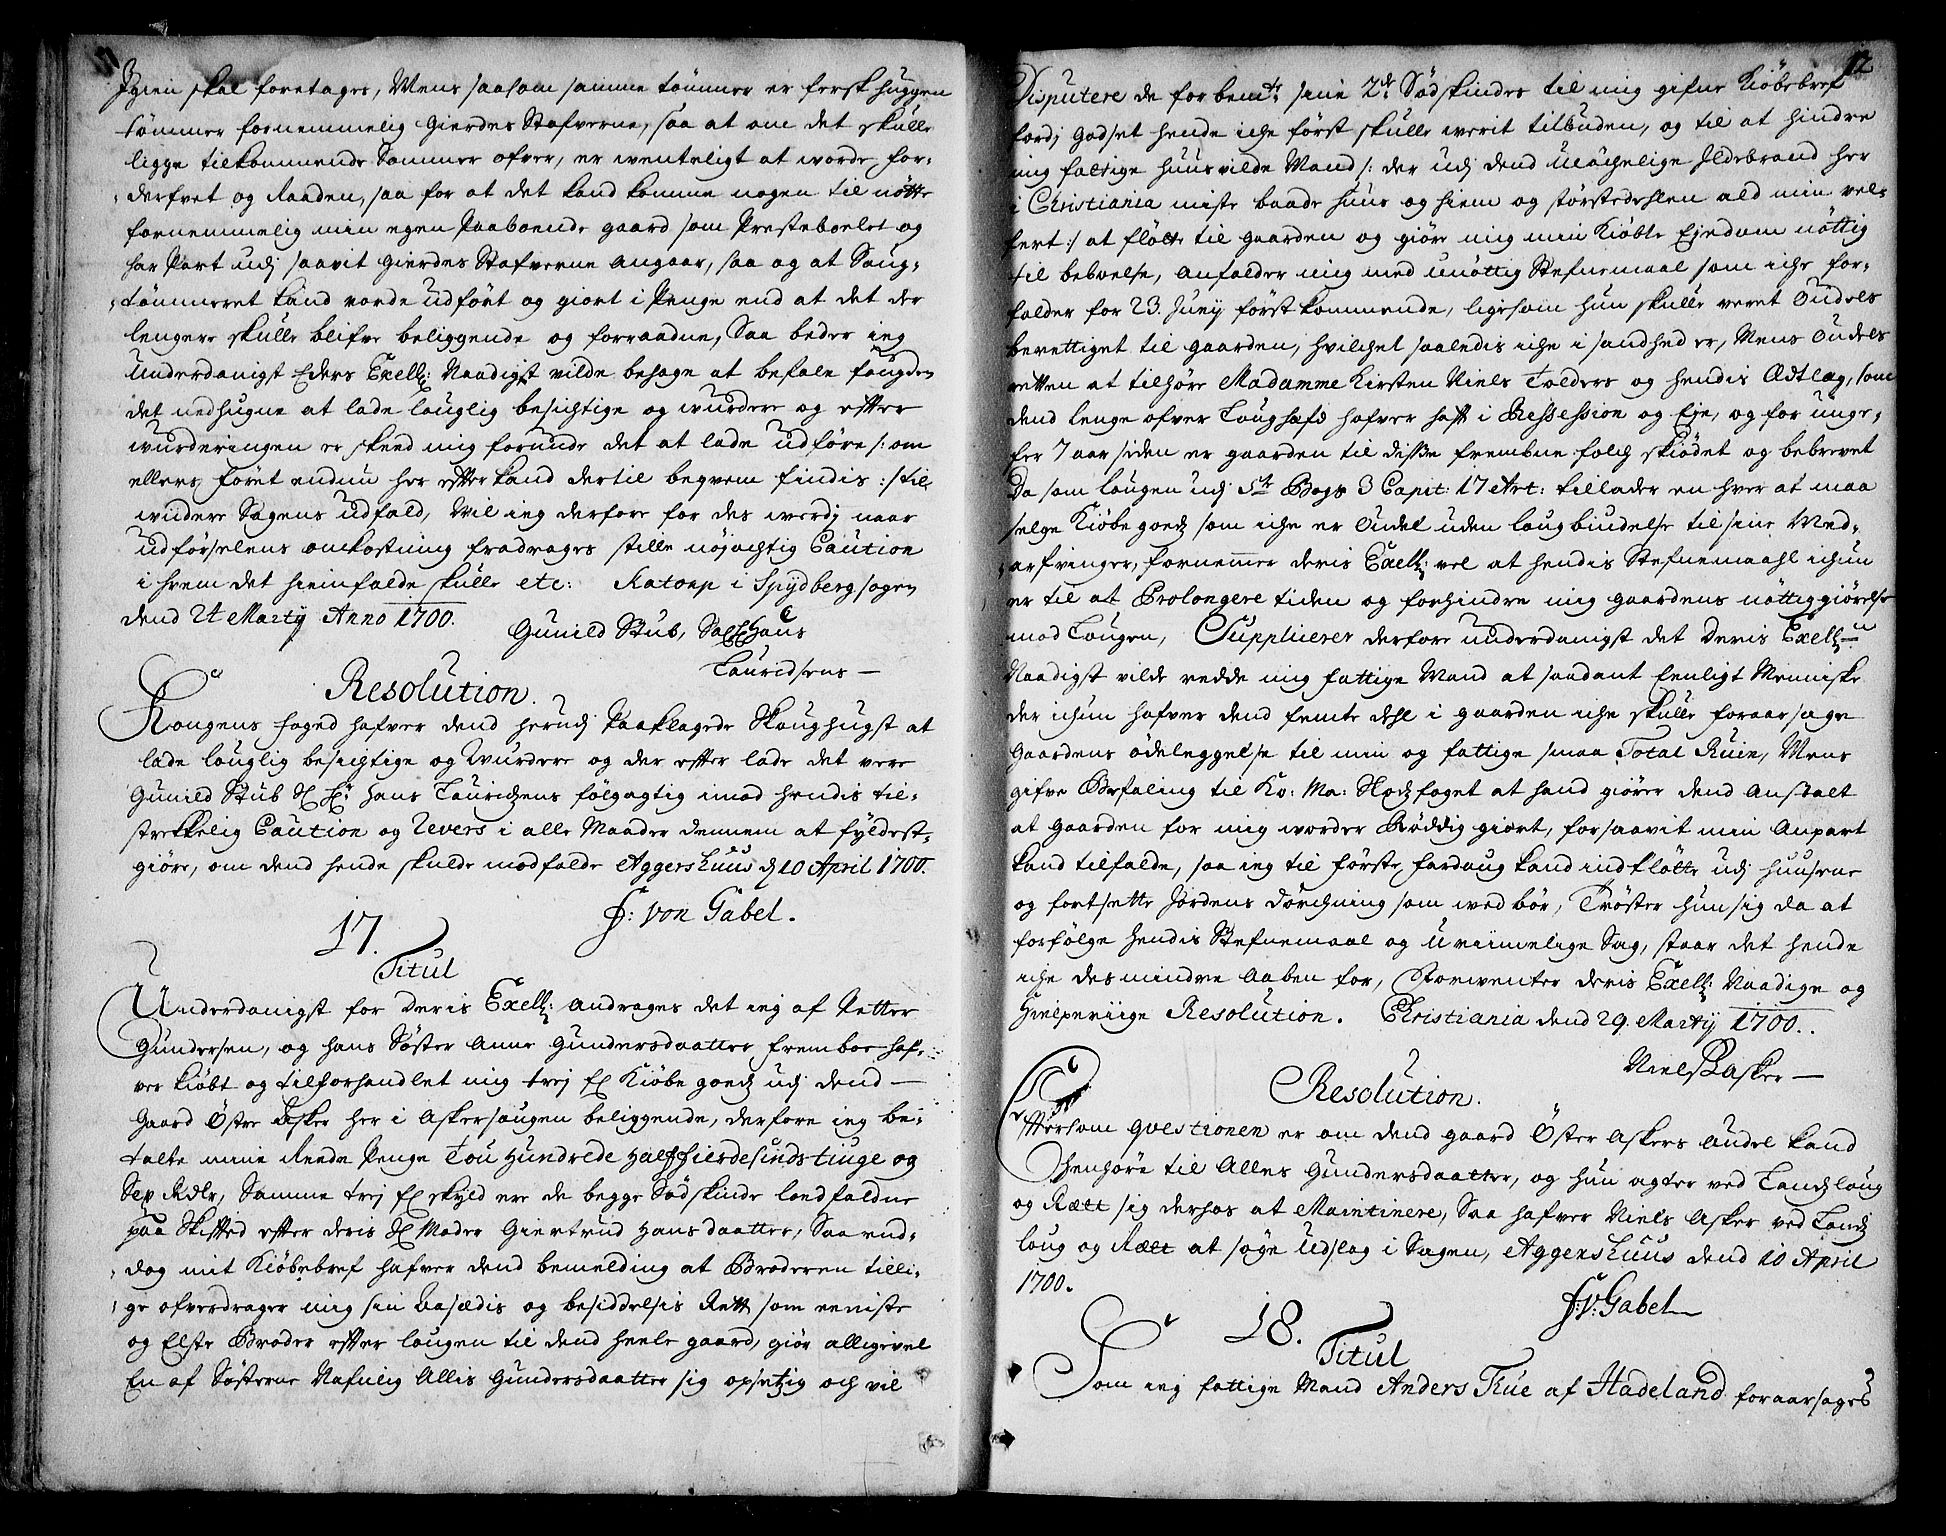 Igien skal foretages, Mens saasom samme tømmer er fersk huggen
tømmer fornemmelig Gierdes Stafverne, saa at om det skulle
ligge tilkommende Sommer ofver, er wenteligt at worde for-
derfvet og Raaden, saa for at det kand komme nogen til nøtte
fornemmelig min egen Paaboende gaard som Presteboelet og
har Part udj saavit Gierdes Stafverne Angaar, saa og at Saug-
tømmeret kand vorde udført og giort i Penge end at det der
lengere skulle blifve beliggende og forraadne, Saa beder ieg
underdanigst Eders Excell: Naadigst vilde behage at befale fougden
det nedhugne at lade louglig besichtige og wurdere og efter
wurderingen er skeed mig forunde det at lade udføre /: om
ellers føret endnu her efter kand dertil beqvem findis :/ til
widere Sagens udfald, Wil ieg derfore for des werdj naar
udførselens omkostning fradrages stille nøjachtig Caution
ihvem det hiemfalde skulle etc: Katorp i Spydberg sogen
dend 24 Martij Anno 1700.
Gunild Stub, Sal Hans
Lauridsens
Resolution.
Kongens foged hafver dend herudj Paaklagede Skoughugst at
lade louglig besichtige og Wurdere og der efter lade det vere
Gunild Stub Sl Hr: Hans Lauridzens følgagtig imod hendis til-
strekkelig Caution og Revers i alle Maader dennem at fyldest-
giøre, om dend hende skulde modfalde Aggershuus d 10 April 1700.
F: von Gabel.
17.
Titul
Underdanigst for Deris Excell: andrages det ieg af Petter
Gundersen, og hans Søster Anne Gundersdaatter frembor haf-
ver kiøbt og tilforhandlet mig trej Kiøbe goeds udj dend
Gaard Østre Asker her i Askersougen beliggende, derfore ieg be-
talte mine Reede Penge Tou Hundrede Halffierdesindstiuge og
Sex Rdlr, Samme trej skyld ere de begge Sødskinde lodfaldne
paa Skifted efter deris Sl Moder Giertrud Hansdaatter, Saa end-
dog mit Kiøbebref hafver dend bemelding at Broderen tilli-
ge ofverdrager mig sin Aasædis og besiddelsis Rett som eeniste
og Elste Broder efter lougen til dend heele gaard, giør alligevel
En af Søsterne Nafnlig Allis Gundersdaatter sig opsetzig och vil
12
Disputere de forbemte sine 2de Sødskindes til mig gifne Kiøbebref
fordj Godset hende iche først skulle werit tilbuden, og til at hindre
mig fattige huusvilde Mand /: der udj dend ulychelige Ildebrand her
i Christiania miste baade huus og hiem og størstedehlen ald min vel-
fert :/ at fløtte til gaarden og giøre mig min Kiøbte Ejendom nøttig
til beboelse, anfalder mig med unøttig Stefnemaal som iche for-
falder for 23. Junij først kommende, ligesom hun skulle veret Oudels
berettiget til gaarden, hvilchet saaledis iche i sandhed er, Mens Oudels
retten at tilhøre Madamme Kirsten Niels Tolders og hendis Adtlæg, som
dend lenge ofver Loughafd hafver haft i Possession og Eje, og for unge-
fer 7 aar siden er gaarden til disse frembne folch skiødet og bebrevet
Da som lougen udj 5te Bogs 3 Capit: 17 Art: tillader en hver at maa
selge Kiøbe goeds som iche er Oudel uden lougbiudelse til sine Med-
arfvinger, fornemmer deris Excell: vel at hendis Stefnemaahl ichun
er til at Prolongere tiden og forhindre mig gaardens nøttiggiørelse
mod Lougen, Supplicerer derfore underdanigst det Deris Excell:
Naadigst vilde redde mig fattige Mand at saadant Eenligt Menniske
der ichun hafver dend femte dehl i gaarden iche skulle foraarsage
Gaardens ødeleggelse til min og fattige smaa Total Ruin, Mens
gifve Befaling til Ko: Ma: Slodsfoget at hand giører dend Anstalt
at gaarden for mig worder Røddig giort, forsaavit min Anpart
kand tilfalde, saa ieg til første fardaug kand indfløtte udj huusene
og fortsette Jordens Dørchning som ved bør, Trøster hun sig da at
forfølge hendis Stefnemaal og uriimelige Sag, staar det hende
iche desmindre aaben for, Forwenter deris Excell: Naadige og
Hielperiige Resolution. Christiania dend 29. Martij 1700..
Niels Asker
Resolution.
Eftersom qvestionen er om dend gaard Øster Askers Audel kand
henhøre til Alles Gundersdaatter, og hun agter ved Landsloug
og Rætt sig derhos at Maintinere, Saa hafver Niels Asker ved Lands
loug og Rætt at søge Udslag i Sagen, Aggershuus dend 10 April
1700.
F: V: Gabel
18.
Titul
Som ieg fattige Mand Anders True af Hadeland foraarsages